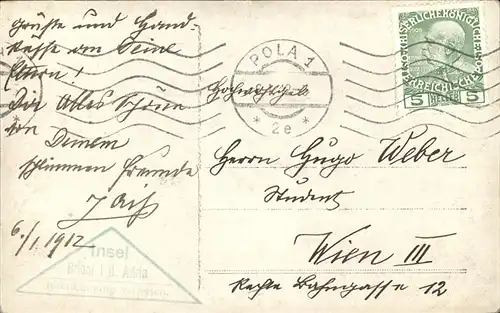 Grüße und Hand-
küsse an Deine
Eltern!
Dir Alles Schöne
von Deinem
schlimmen Freunde
6./1. 1912
Insel
Brioni i. d. Adria
POLA 1
* 2e *
KAISERLICHE KÖNIGLICHE
ÖSTERREICHISCHE
5 HELLER 5
Hochwohlgeb.
Herrn Hugo Weber
Student
Wien III
Rechte Bahngasse 12